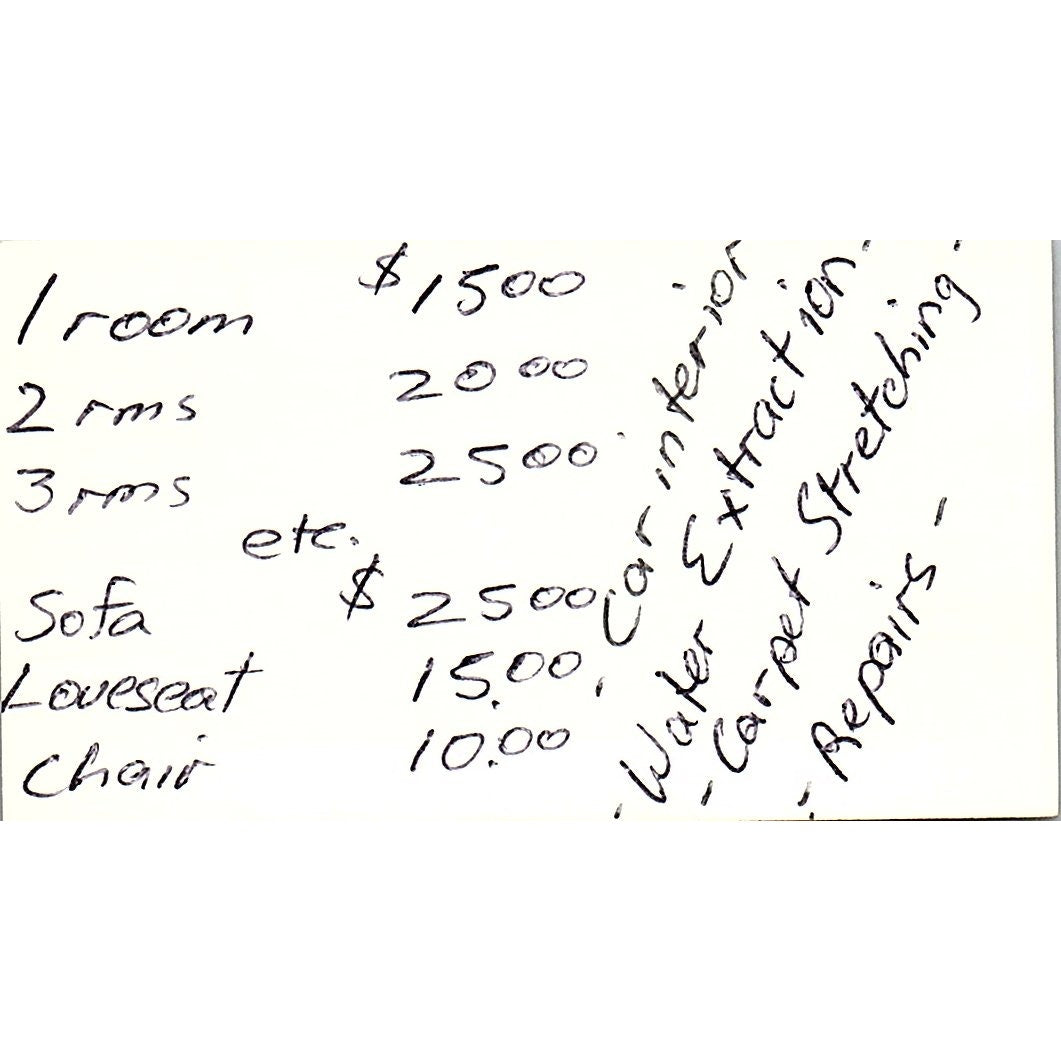 1 room $15 00
2 rms 20 00
3 rms 25 00
etc.
Sofa $ 25 00
Loveseat 15.00
Chair 10.00
- Car interior
- Water Extraction -
- Carpet Stretching -
- Repairs -